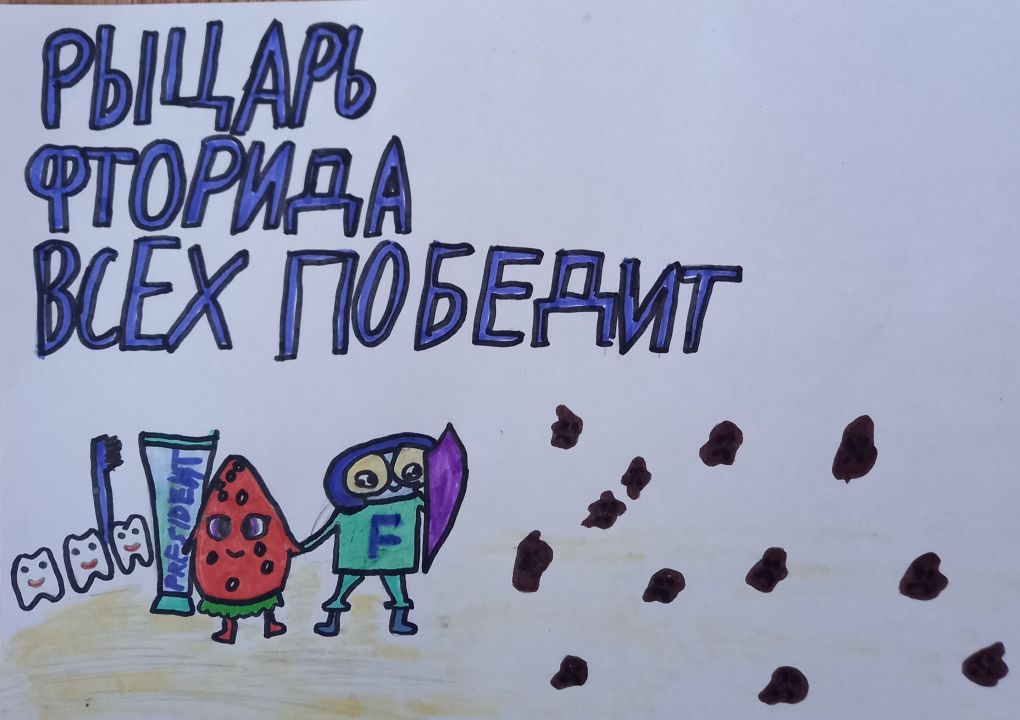 РЫЦАРЬ
ФТОРИДА
ВСЕХ ПОБЕДИТ
PRESIDENT
F